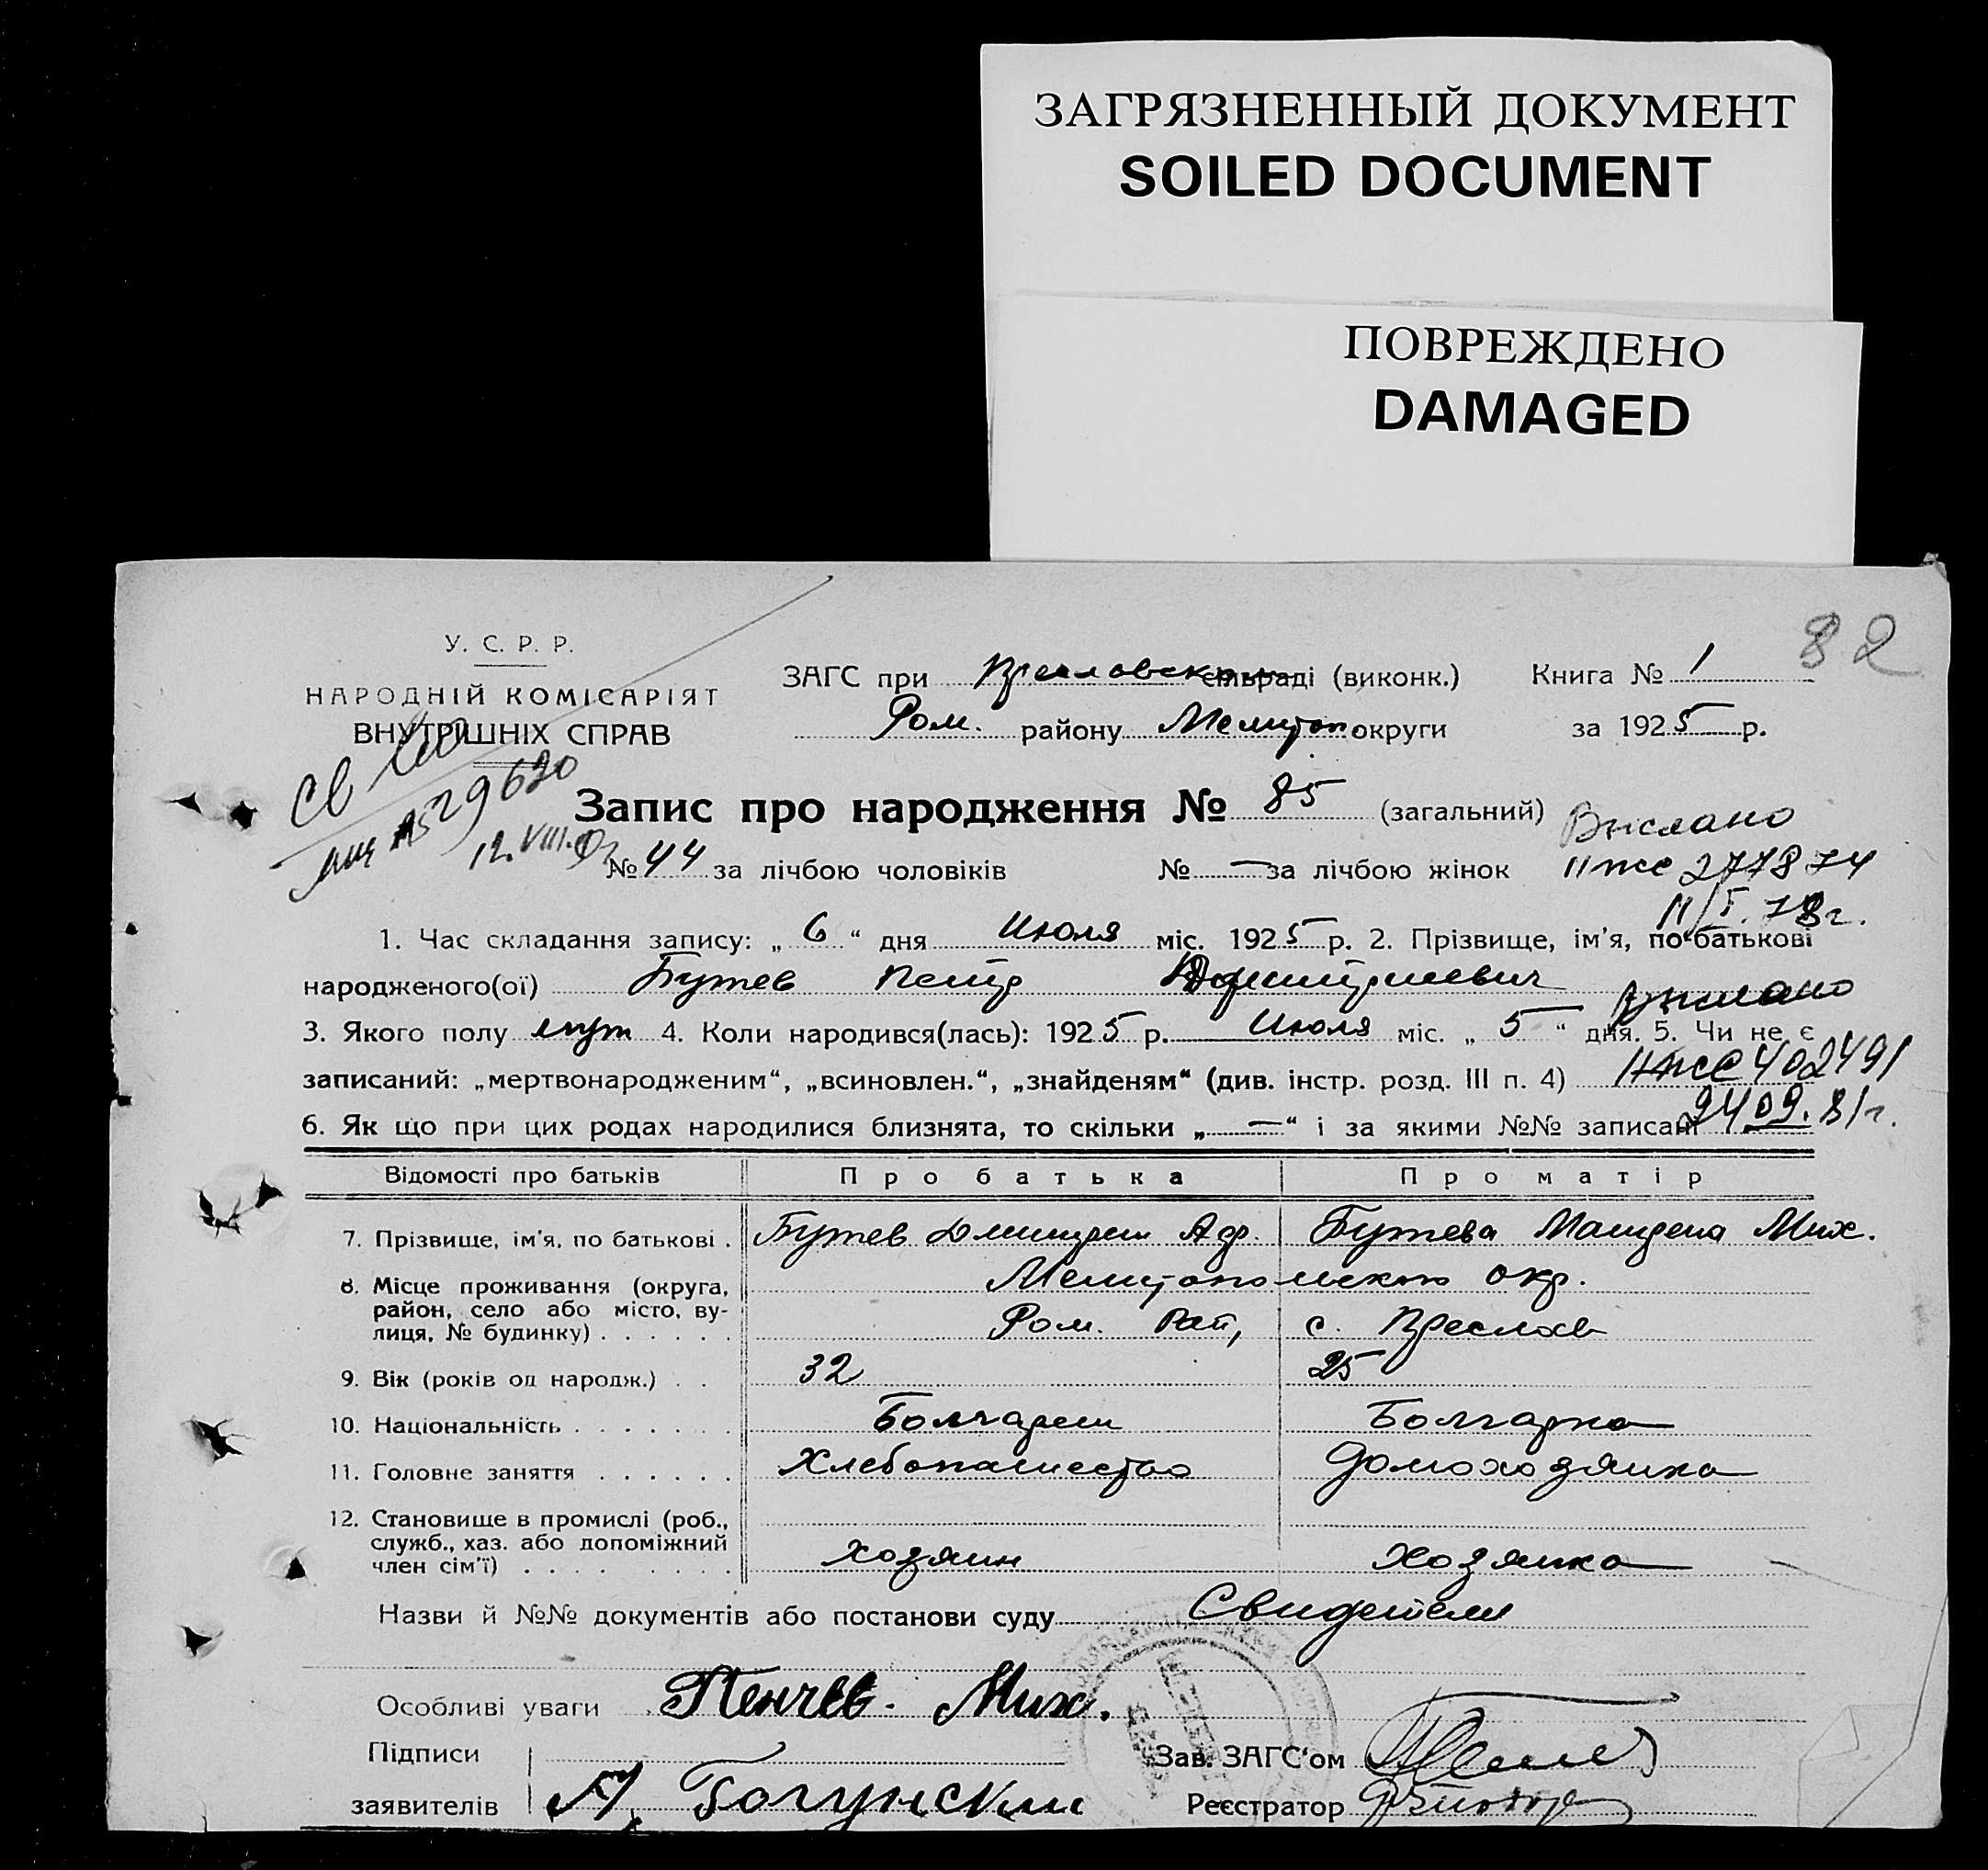 ЗАГРЯЗНЕННЫЙ ДОКУМЕНТ
SOILED DOCUMENT
ПОВРЕЖДЕНО
DAMAGED
82
У. С. Р. Р.
НАРОДНІЙ КОМІСАРІЯТ
ВНУТРІШНІХ СПРАВ
ЗАГС при Преславском сільраді (виконк.) Книга № 1
Ром. району Мелитоп. округи за 1925 р.
Запис про народження № 85 (загальний)
№ 44 за лічбою чоловіків № — за лічбою жінок
Выслано
II жс 277874
11/I. 78г.
1. Час складання запису: „ 6 “ дня Июля міс. 1925 р. 2. Прізвище, ім'я, по-батькові
народженого(ої) Бутев Петр Дмитриевич
Выслано
3. Якого полу муж 4. Коли народився(лась): 1925 р. Июля міс. „ 5 “ дня. 5. Чи не є
записаний: „мертвонародженим“, „всиновлен.“, „знайденям“ (див. інстр. розд. III п. 4)
II жс 402491
24 09. 81г.
6. Як що при цих родах народилися близнята, то скільки „ — “ і за якими №№ записані
Відомості про батьків Про батька Про матір
7. Прізвище, ім'я, по батькові . Бутев Дмитрий Аф. Бутева Мат Мих.
8. Місце проживання (округа, Мелитопольского окр.
район, село або місто, ву-
лиця, № будинку) . . . . . . Ром. Рай, с. Преслав
9. Вік (років од народж.) . . 32 25
10. Національність . . . . . . . Болгарин Болгарка
11. Головне заняття . . . . . . Хлебопашество Домохозяйка
12. Становище в промислі (роб.,
служб., хаз. або допоміжний
член сім'ї) . . . . . . . . Хозяин Хозяйка
Назви й №№ документів або постанови суду Свидетели
Особливі уваги Пенчев. Мих.
Підписи Зав. ЗАГС'ом
заявителів Реєстратор